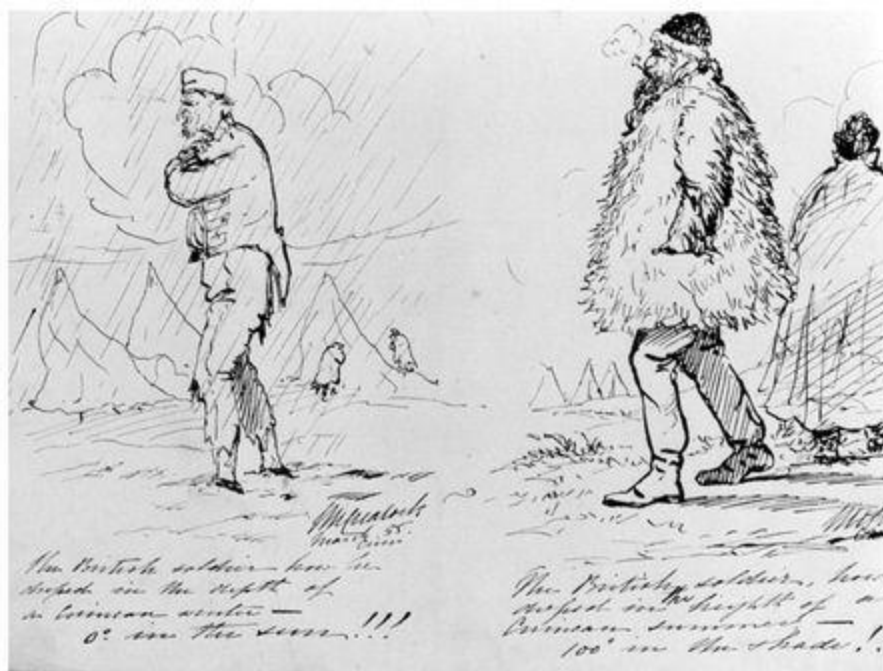 The British soldier how he
dressed in the depth of
a Crimean winter —
0° in the sun!!!
The British soldier, how
dressed in the height of a
Crimean summer —
100° in the shade!!